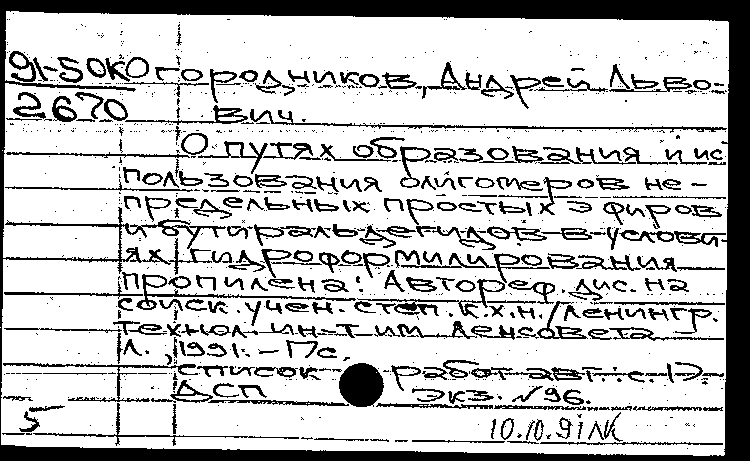 91-50К Огородников, Андрей Льво-
2670 вич.
О путях образования и ис
пользования олигомеров не-
предельных простых эфиров
и бутиральдегидов в услови-
ях гидроформилирования
пропилена: Автореф. дис. на
соиск. учен. степ. к.х.н. / Ленингр.
технол. ин-т им Ленсовета
Л., 1991. - 17с.
список работ авт.: с. 17.
ДСП Экз. №96.
5 10.10.91